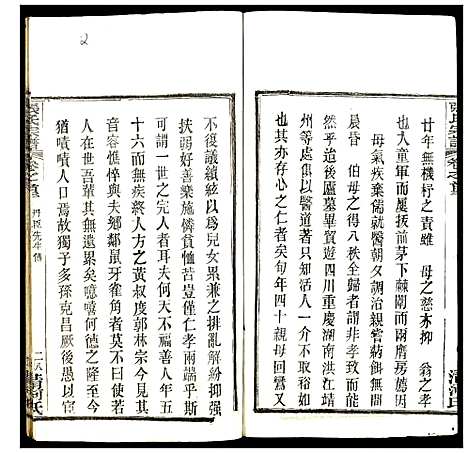 廿年無機杼之責雖　母之慈亦抑　翁之孝
也入童軍而前茅下棘闈而兩膺房薦因
母氣疾棄儒就醫朝夕調治親嘗餚飲無間
晨昏　伯母之得八秩全歸者謂非孝之能
致乎嗣後廬墓畢貿遊四川重慶湖南洪江貴
州等處所以醫道著只知活人一介不取裕如
也其亦存心之仁者矣旬年四十親母回鸞又
張氏宗譜
卷之首
清河氏
2
不復議續絃以為兒女累兼之排亂解紛抑強
扶弱好善樂施憐貧恤苦豈僅仁孝兩端乎斯
可謂一世之完人者耳夫何天不福善人年五
十六而無疾終人方之黃叔度郭林宗今見其
音容憔悴與夫鄉鄰鼠牙雀角者莫不曰使若
人在世吾其無還累矣噫嘻何德之隆至今
猶嘖嘖人口焉故獨子多孫克昌厥後愚以官
張氏宗譜
卷之首
丹臣先生傳
二八
清河氏